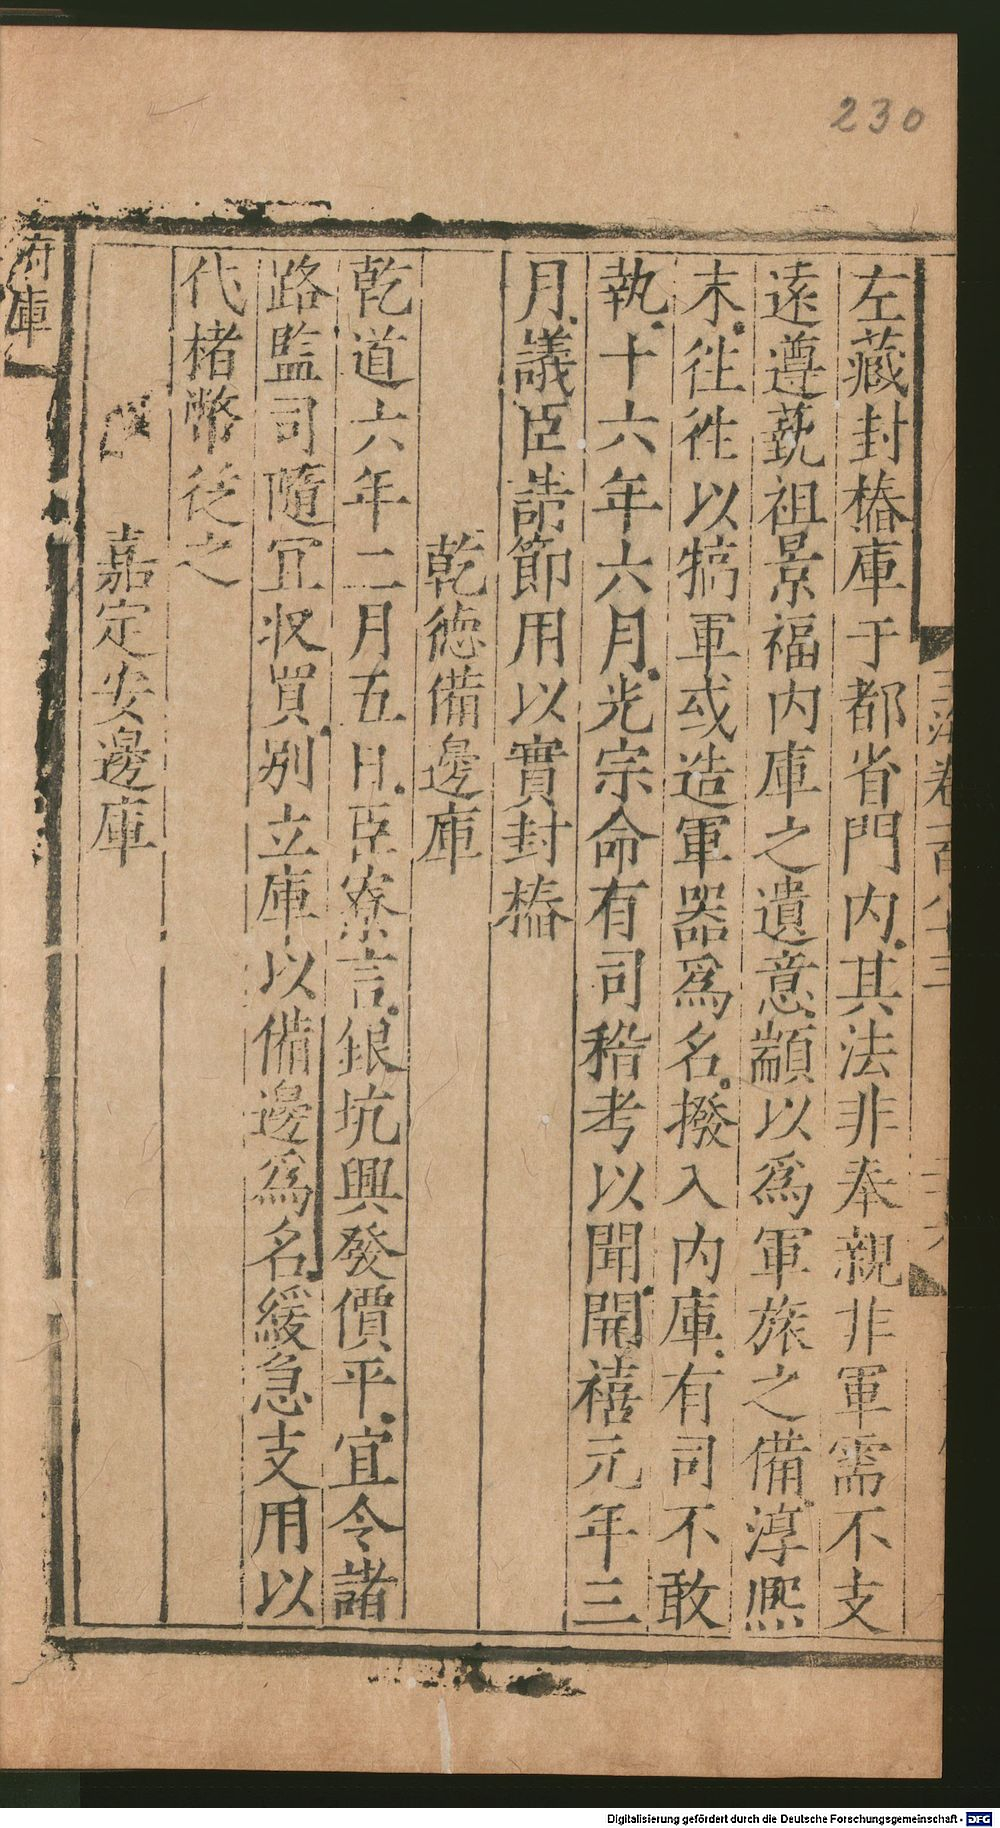 230
左藏封樁庫于都省門内其法非奉親非軍需不支
遠遵蓺祖景福内庫之遺意顓以爲軍旅之備淳熈
末徃徃以犒軍或造軍器爲名撥入内庫有司不敢
執十六年六月光宗命有司稽考以聞開禧元年三
月議臣請節用以實封樁
乾德備邊庫
乾道六年二月五日臣寮言銀坑興發價平宜令諸
路監司隨冝收買別立庫以備邊爲名緩急支用以
代楮幣從之
嘉定安邊庫
府庫
Digitalisierung gefördert durch die Deutsche Forschungsgemeinschaft - DFG